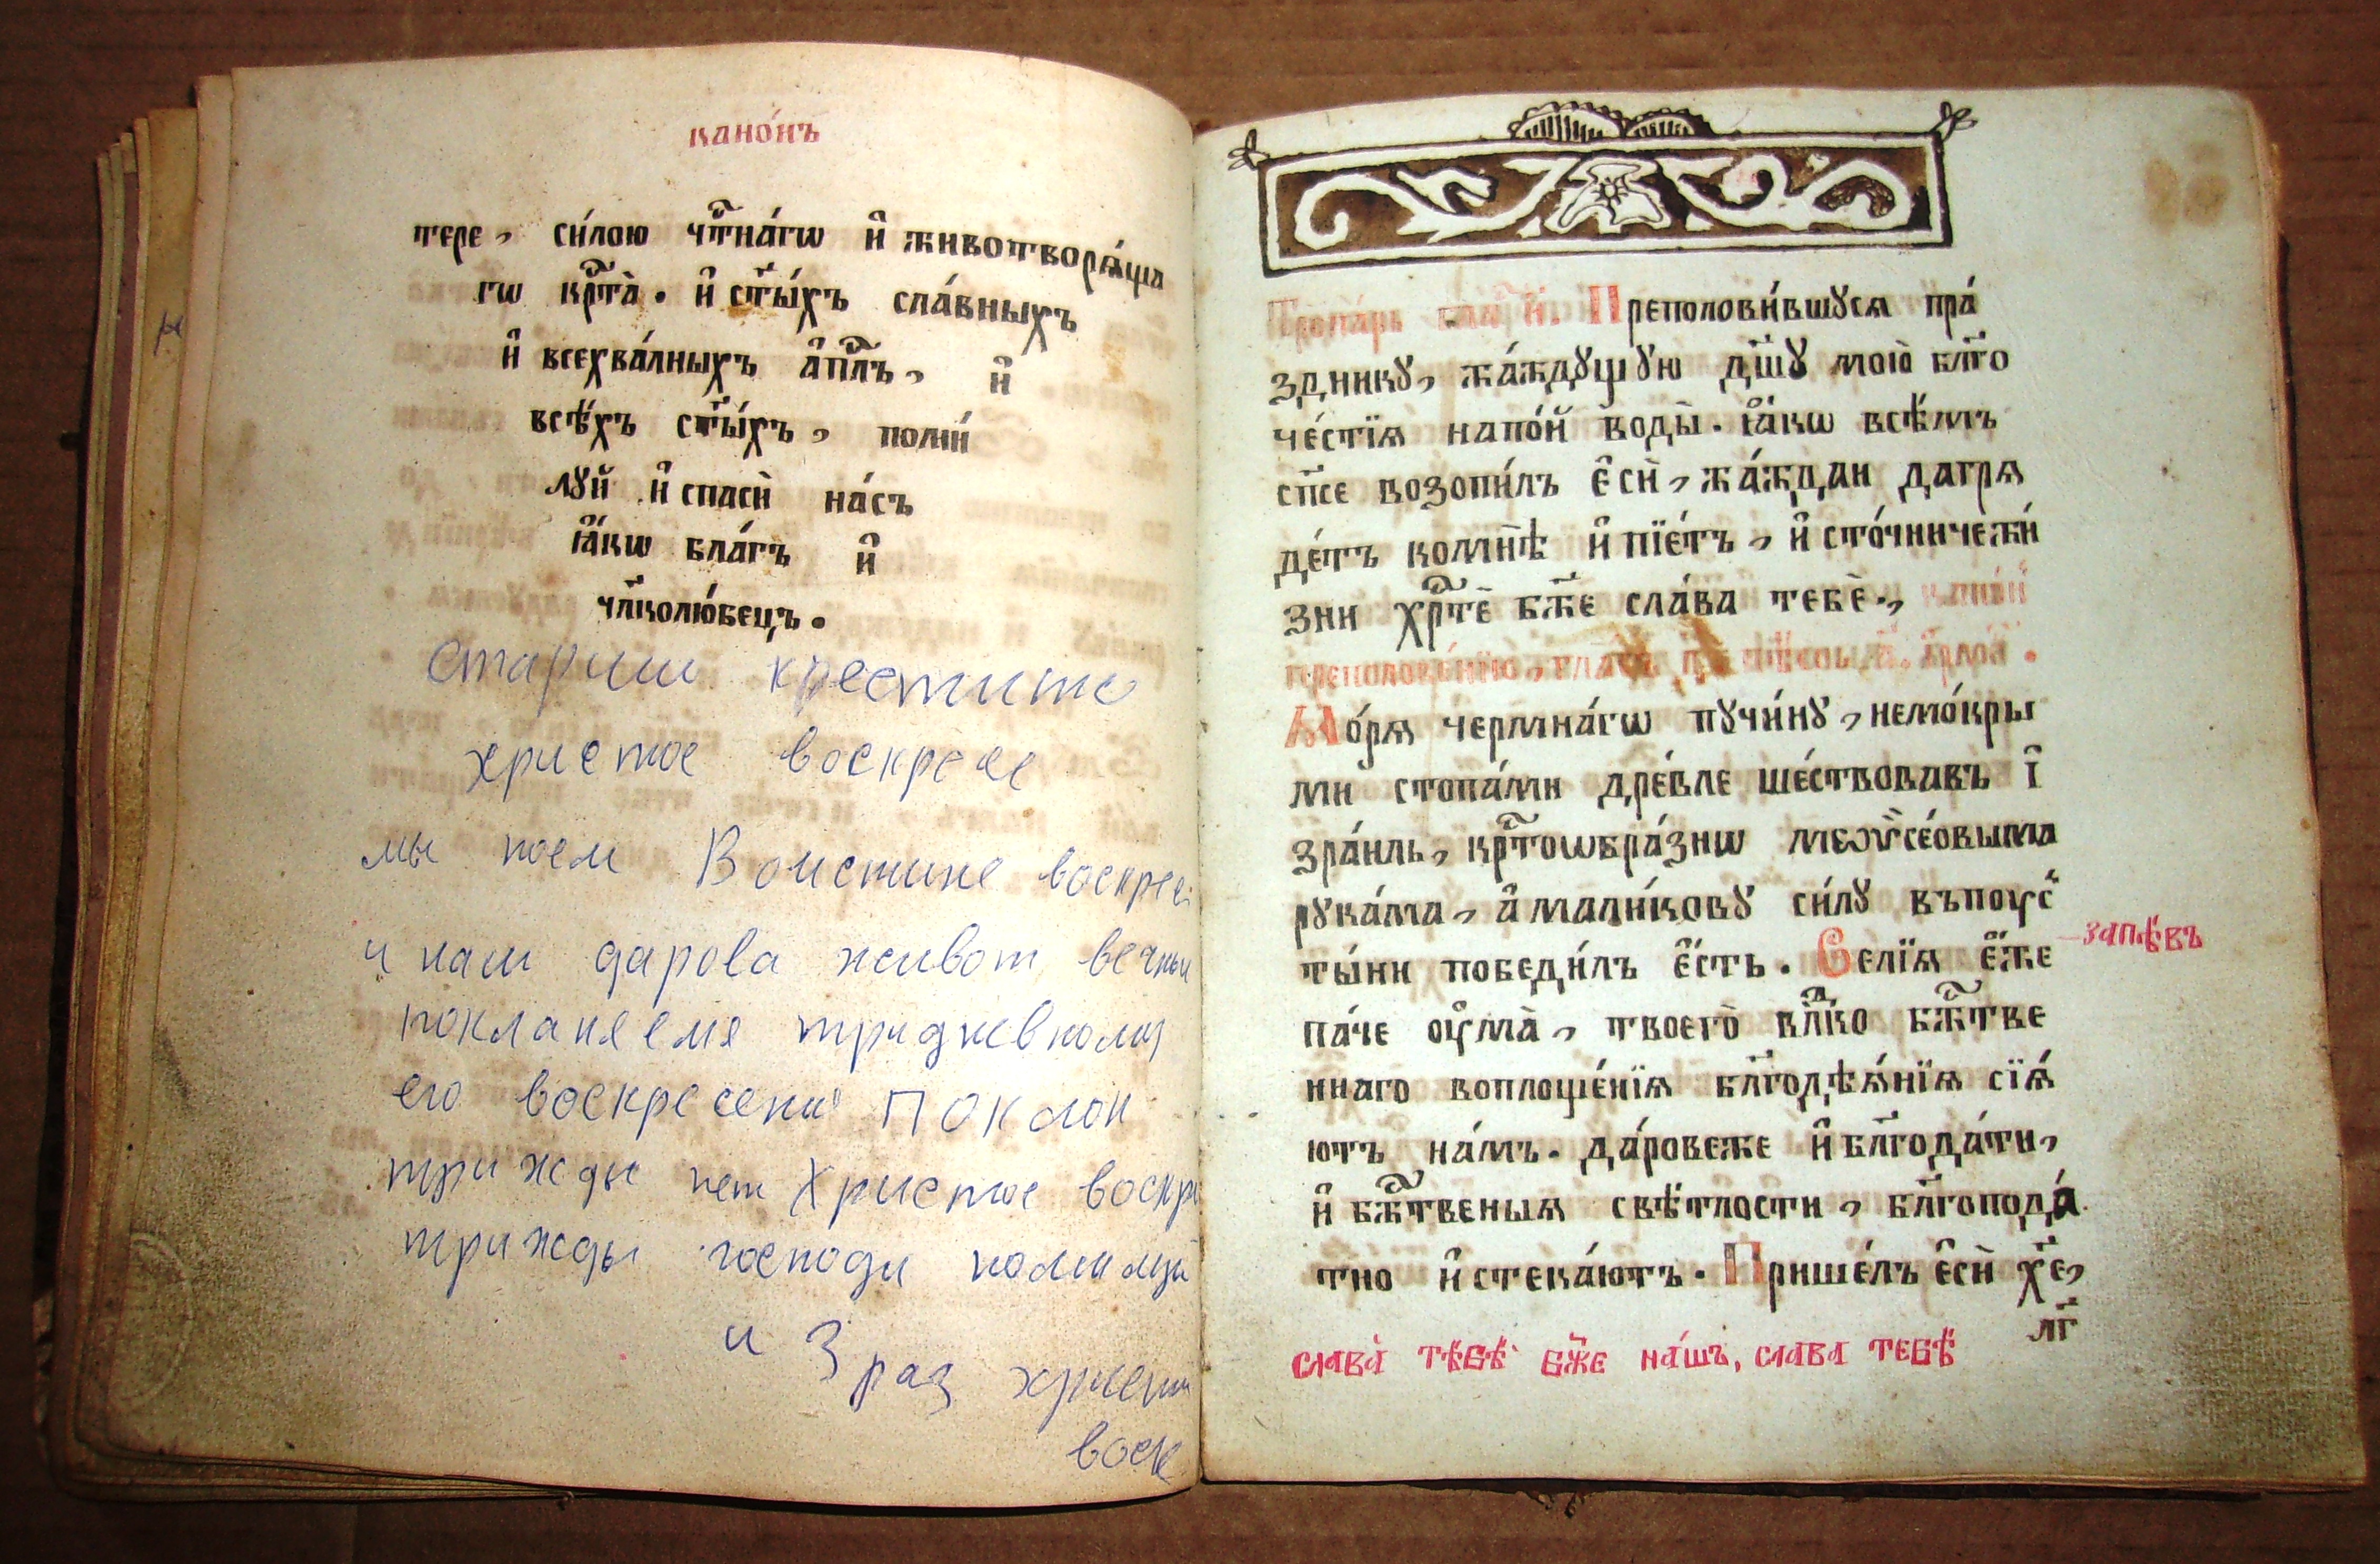 канѡ́нъ
тере, си́лою чⷭ҇тна́гѡ и҆ животворѧ́ща
гѡ крⷭ҇та̀. и҆ ст҃ы́хъ сла́вныхъ
и҆ всехва́лныхъ а҆пⷭ҇лъ, и҆
всѣ́хъ ст҃ы́хъ, поми́
лꙋй и҆ спасѝ на́съ
ꙗ҆́кѡ бла́гъ и҆
чл҃колю́бецъ.
старши крестите
христос воскресе
мы поем Воистине воскресе
и нам дарова живот вечны
покланяемя тридневному
его воскресени Поклон
трижды пет Христос воскре
трижды господи помилуй
и 3 раз христ
воск
Тропа́рь гла́ и҃. Преполови́вшꙋсѧ пра́
зднику, жа́ждꙋщꙋю дш҃ꙋ мою̀ бл҃го
че́стїѧ напо́й воды̀. ꙗ҆́кѡ всѣ́мъ
сп҃се возопи́лъ є҆сѝ, жа́ждаи да грѧ
де́тъ ко мнѣ̀ и҆ пїе́тъ, и҆сто́чниче жи́
зни хрⷭ҇тѐ бж҃е сла́ва тебѐ., кано́н
преполове́нїю, гла́съ д҃. пѣ́снь а҃. і҆рмо́с.
Мо́рѧ чермна́гѡ пꙋчи́нꙋ, немо́кры
ми стопа́ми дре́вле ше́ствовавъ і҆
зра́иль, крⷭ҇тоѡбра́знѡ меѡѷсе́овыма
рꙋка́ма, а҆мали́ковꙋ си́лꙋ въ поус
ты́ни победи́лъ є҆́сть. Велїѧ є҆́же
запѣ́въ
па́че оу҆ма̀, твоего̀ влⷣко бжⷭ҇тве
ннаго воплоще́нїѧ бл҃годѣѧ́нїѧ сїѧ́
ютъ на́мъ. да́рове же и҆ бл҃года́ти,
и҆ бжⷭ҇твеныѧ свѣ́тлости, бл҃гопода́
тно и҆стека́ютъ. Прише́лъ є҆сѝ хе҃,
лг҃
слава̀ тѣбѣ̀ бж҃е на́шъ, слава тебѣ